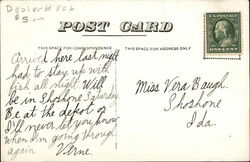 $5.00
POST CARD
THIS SPACE FOR CORRESPONDENCE
THIS SPACE FOR ADDRESS ONLY
Arrived here last night
had to stay up with
fish all night. Will
be in Shoshone Saturday
Be at the depot or
I'll never let you know
when I'm going through
again
Verne.
Miss Vera Baugh.
Shoshone
Ida.